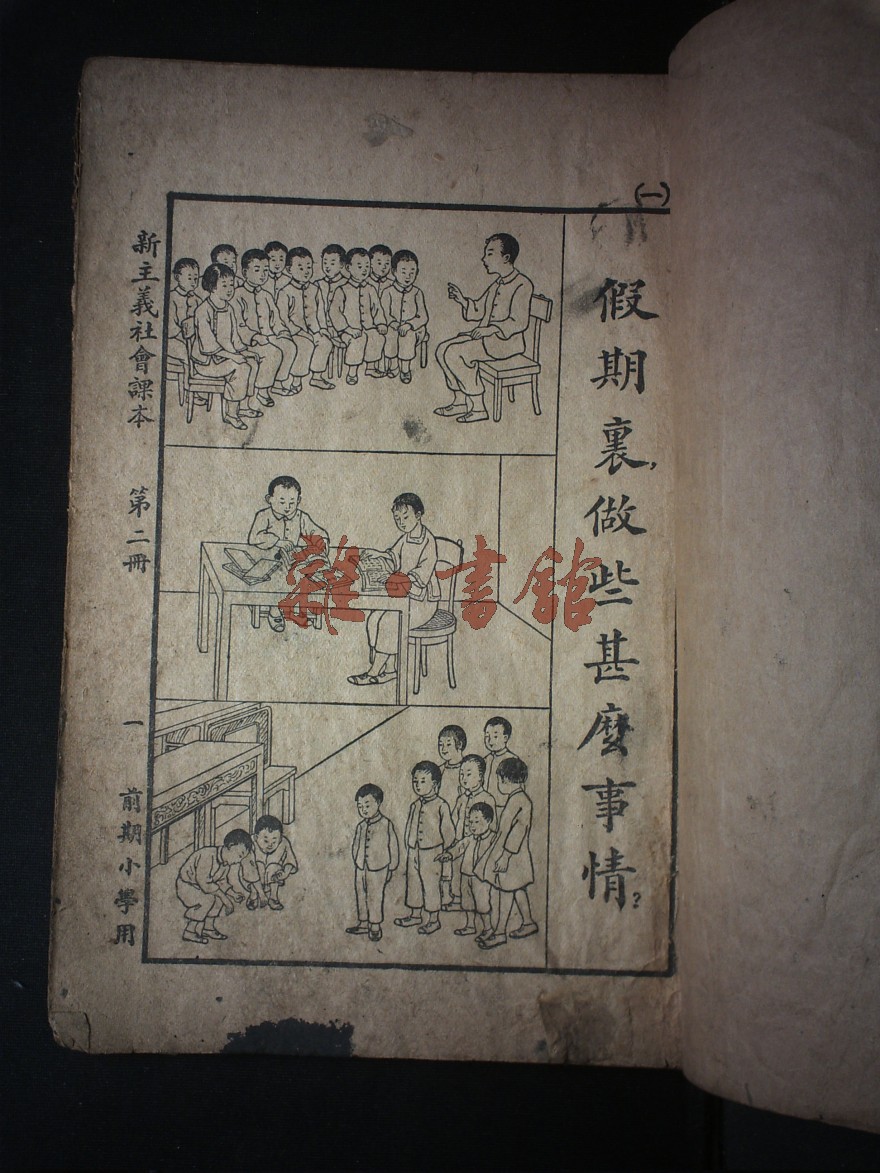 (一)
假期裏,做些甚麼事情?
新主義社會課本 第二冊 一 前期小學用
雜·書館